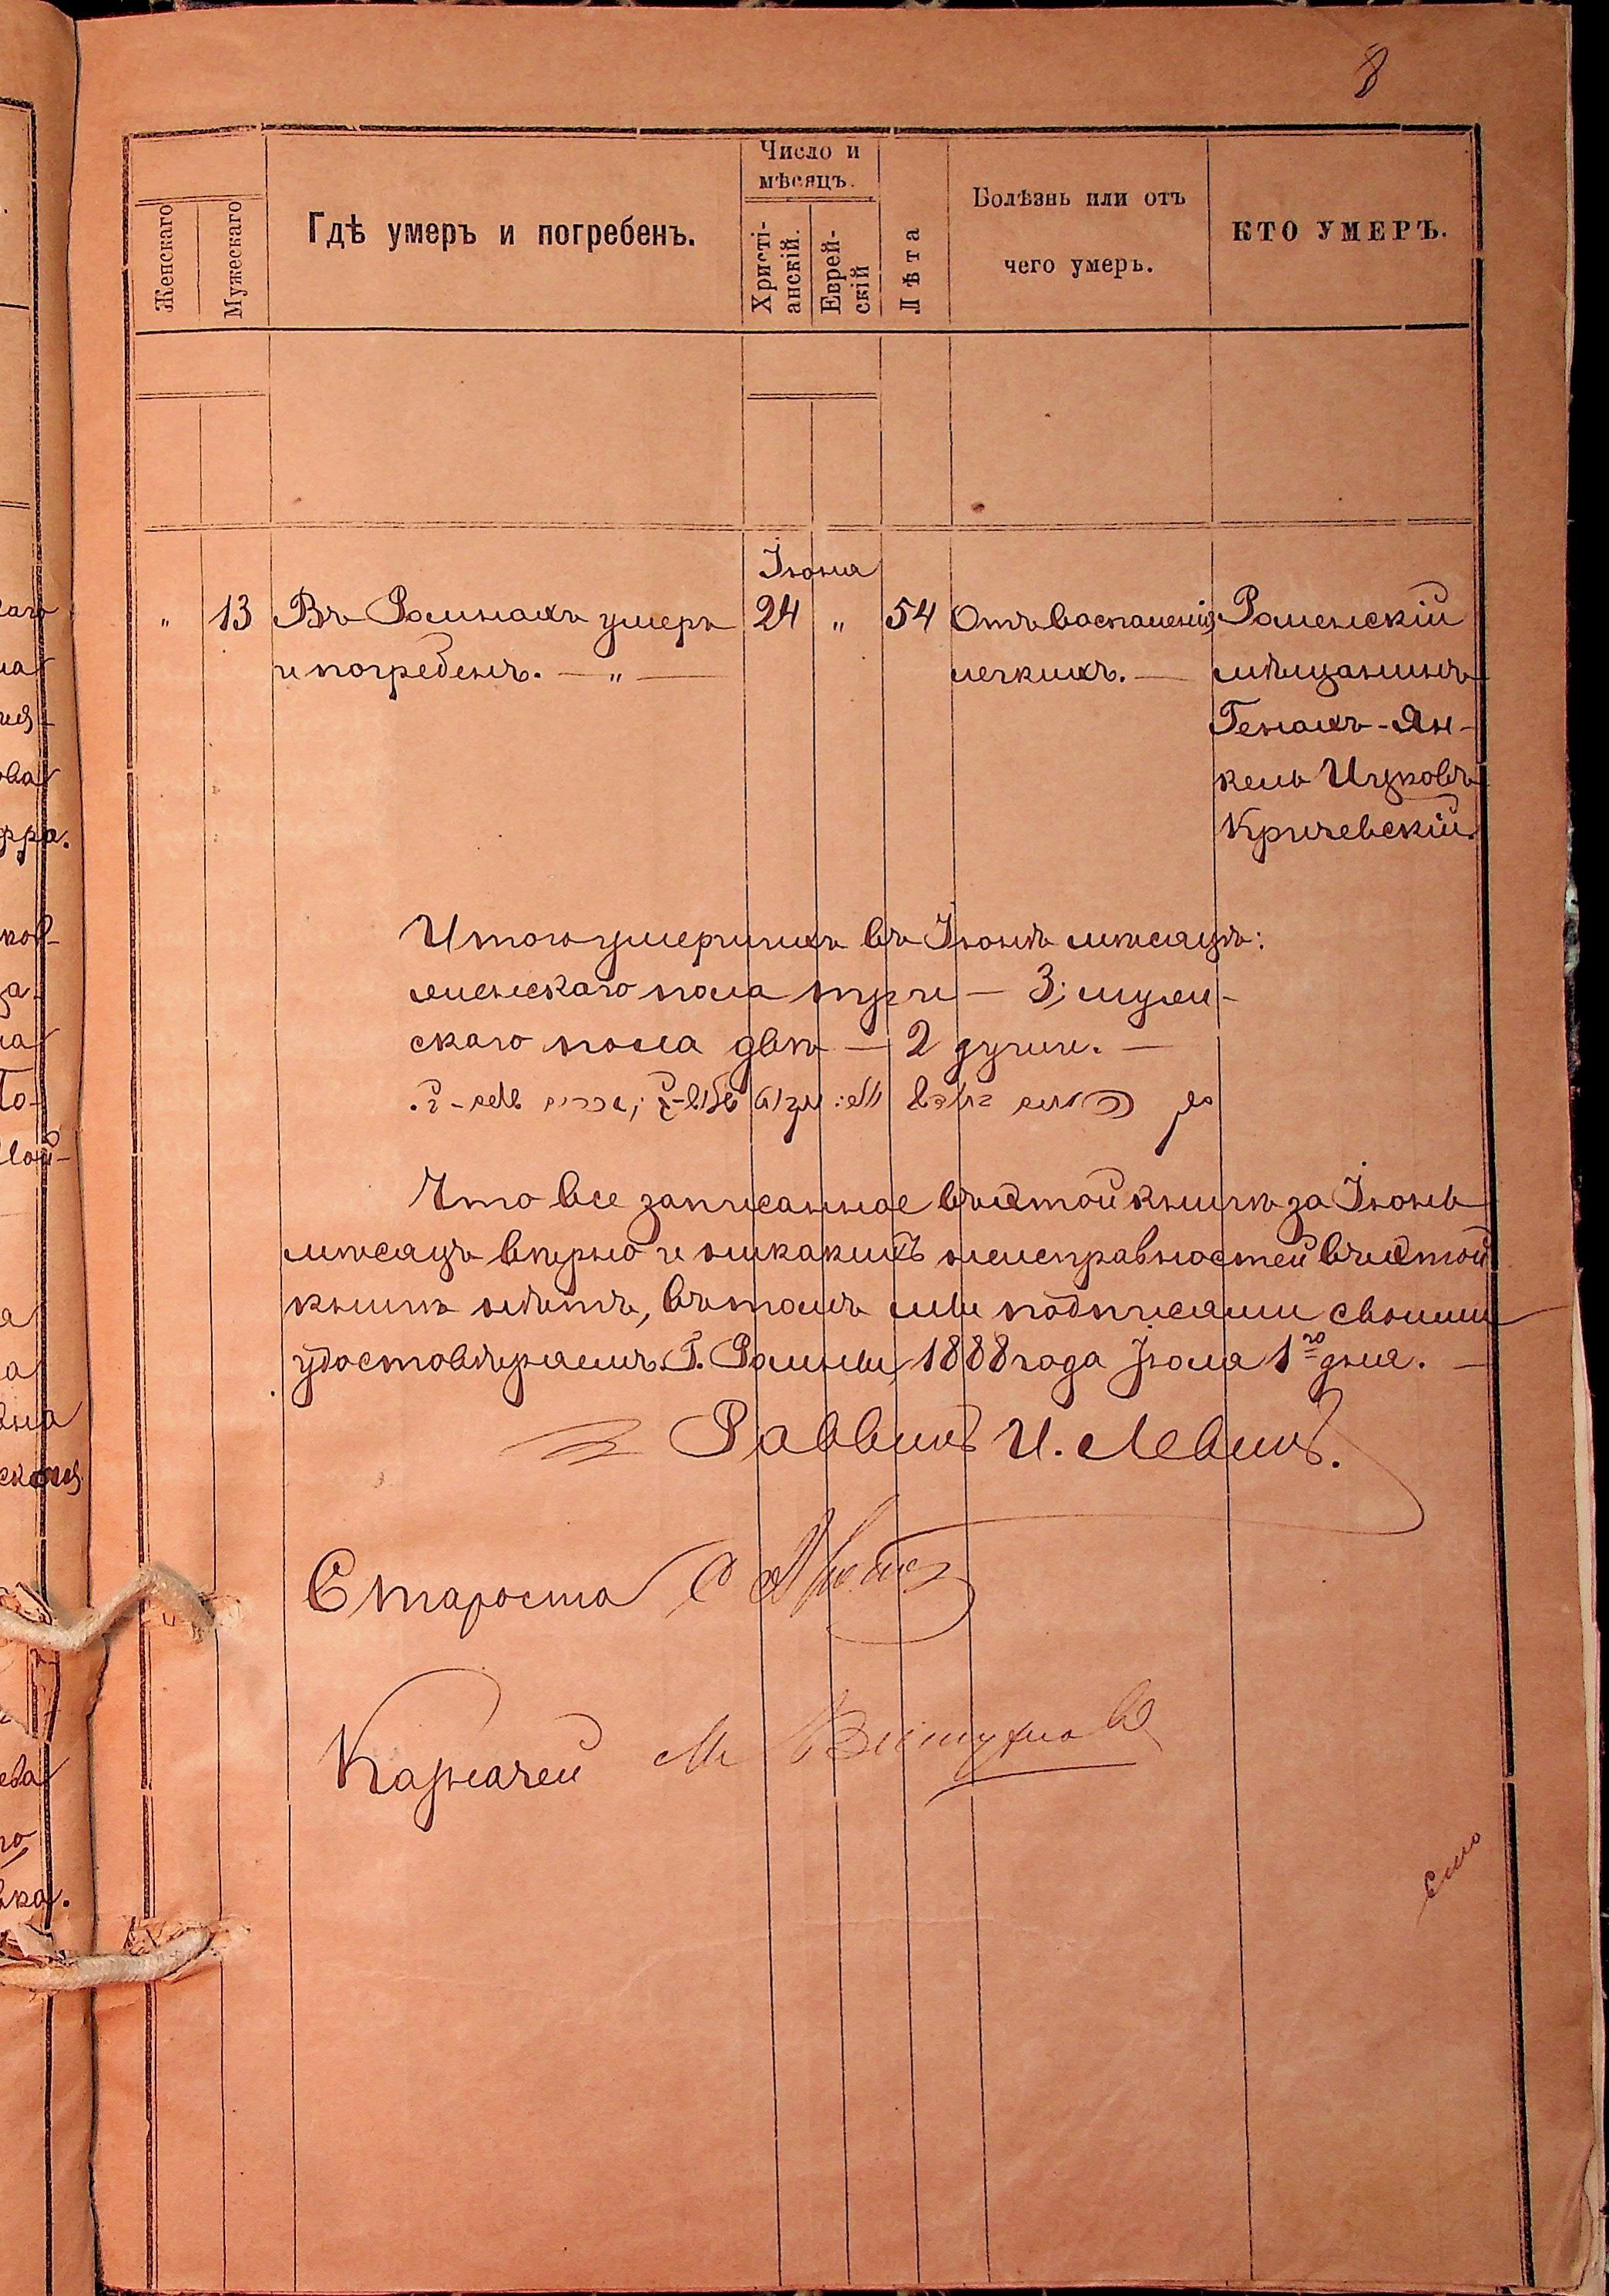 8
Число и
мѣсяцъ.
Женскаго
Мужескаго
Гдѣ умеръ и погребенъ.
Христі-
анскій.
Еврей-
скій
Лѣта
Болѣзнь или отъ
чего умеръ.
КТО УМЕРЪ.
Іюня
" 13 Въ Ромнахъ умеръ 24 " 54 Отъ воспаленія Роменскій
и погребенъ. — " — легкихъ. — мѣщанинъ
Генахъ-Ян-
кель Ицковъ
Кричевскій.
Итого умершихъ въ Іюнѣ мѣсяцѣ:
женскаго пола три — 3; муже-
скаго пола двѣ — 2 души. —
Что все записанное въ этой книгѣ за Іюнь
мѣсяцъ вѣрно и никакихъ неисправностей въ этой
книгѣ нѣтъ, въ томъ мы подписами своими
удостовѣряемъ. Г. Ромны, 1888 года Іюля 1го дня. —
Раввинъ И. Левинъ.
Староста
Казначей М